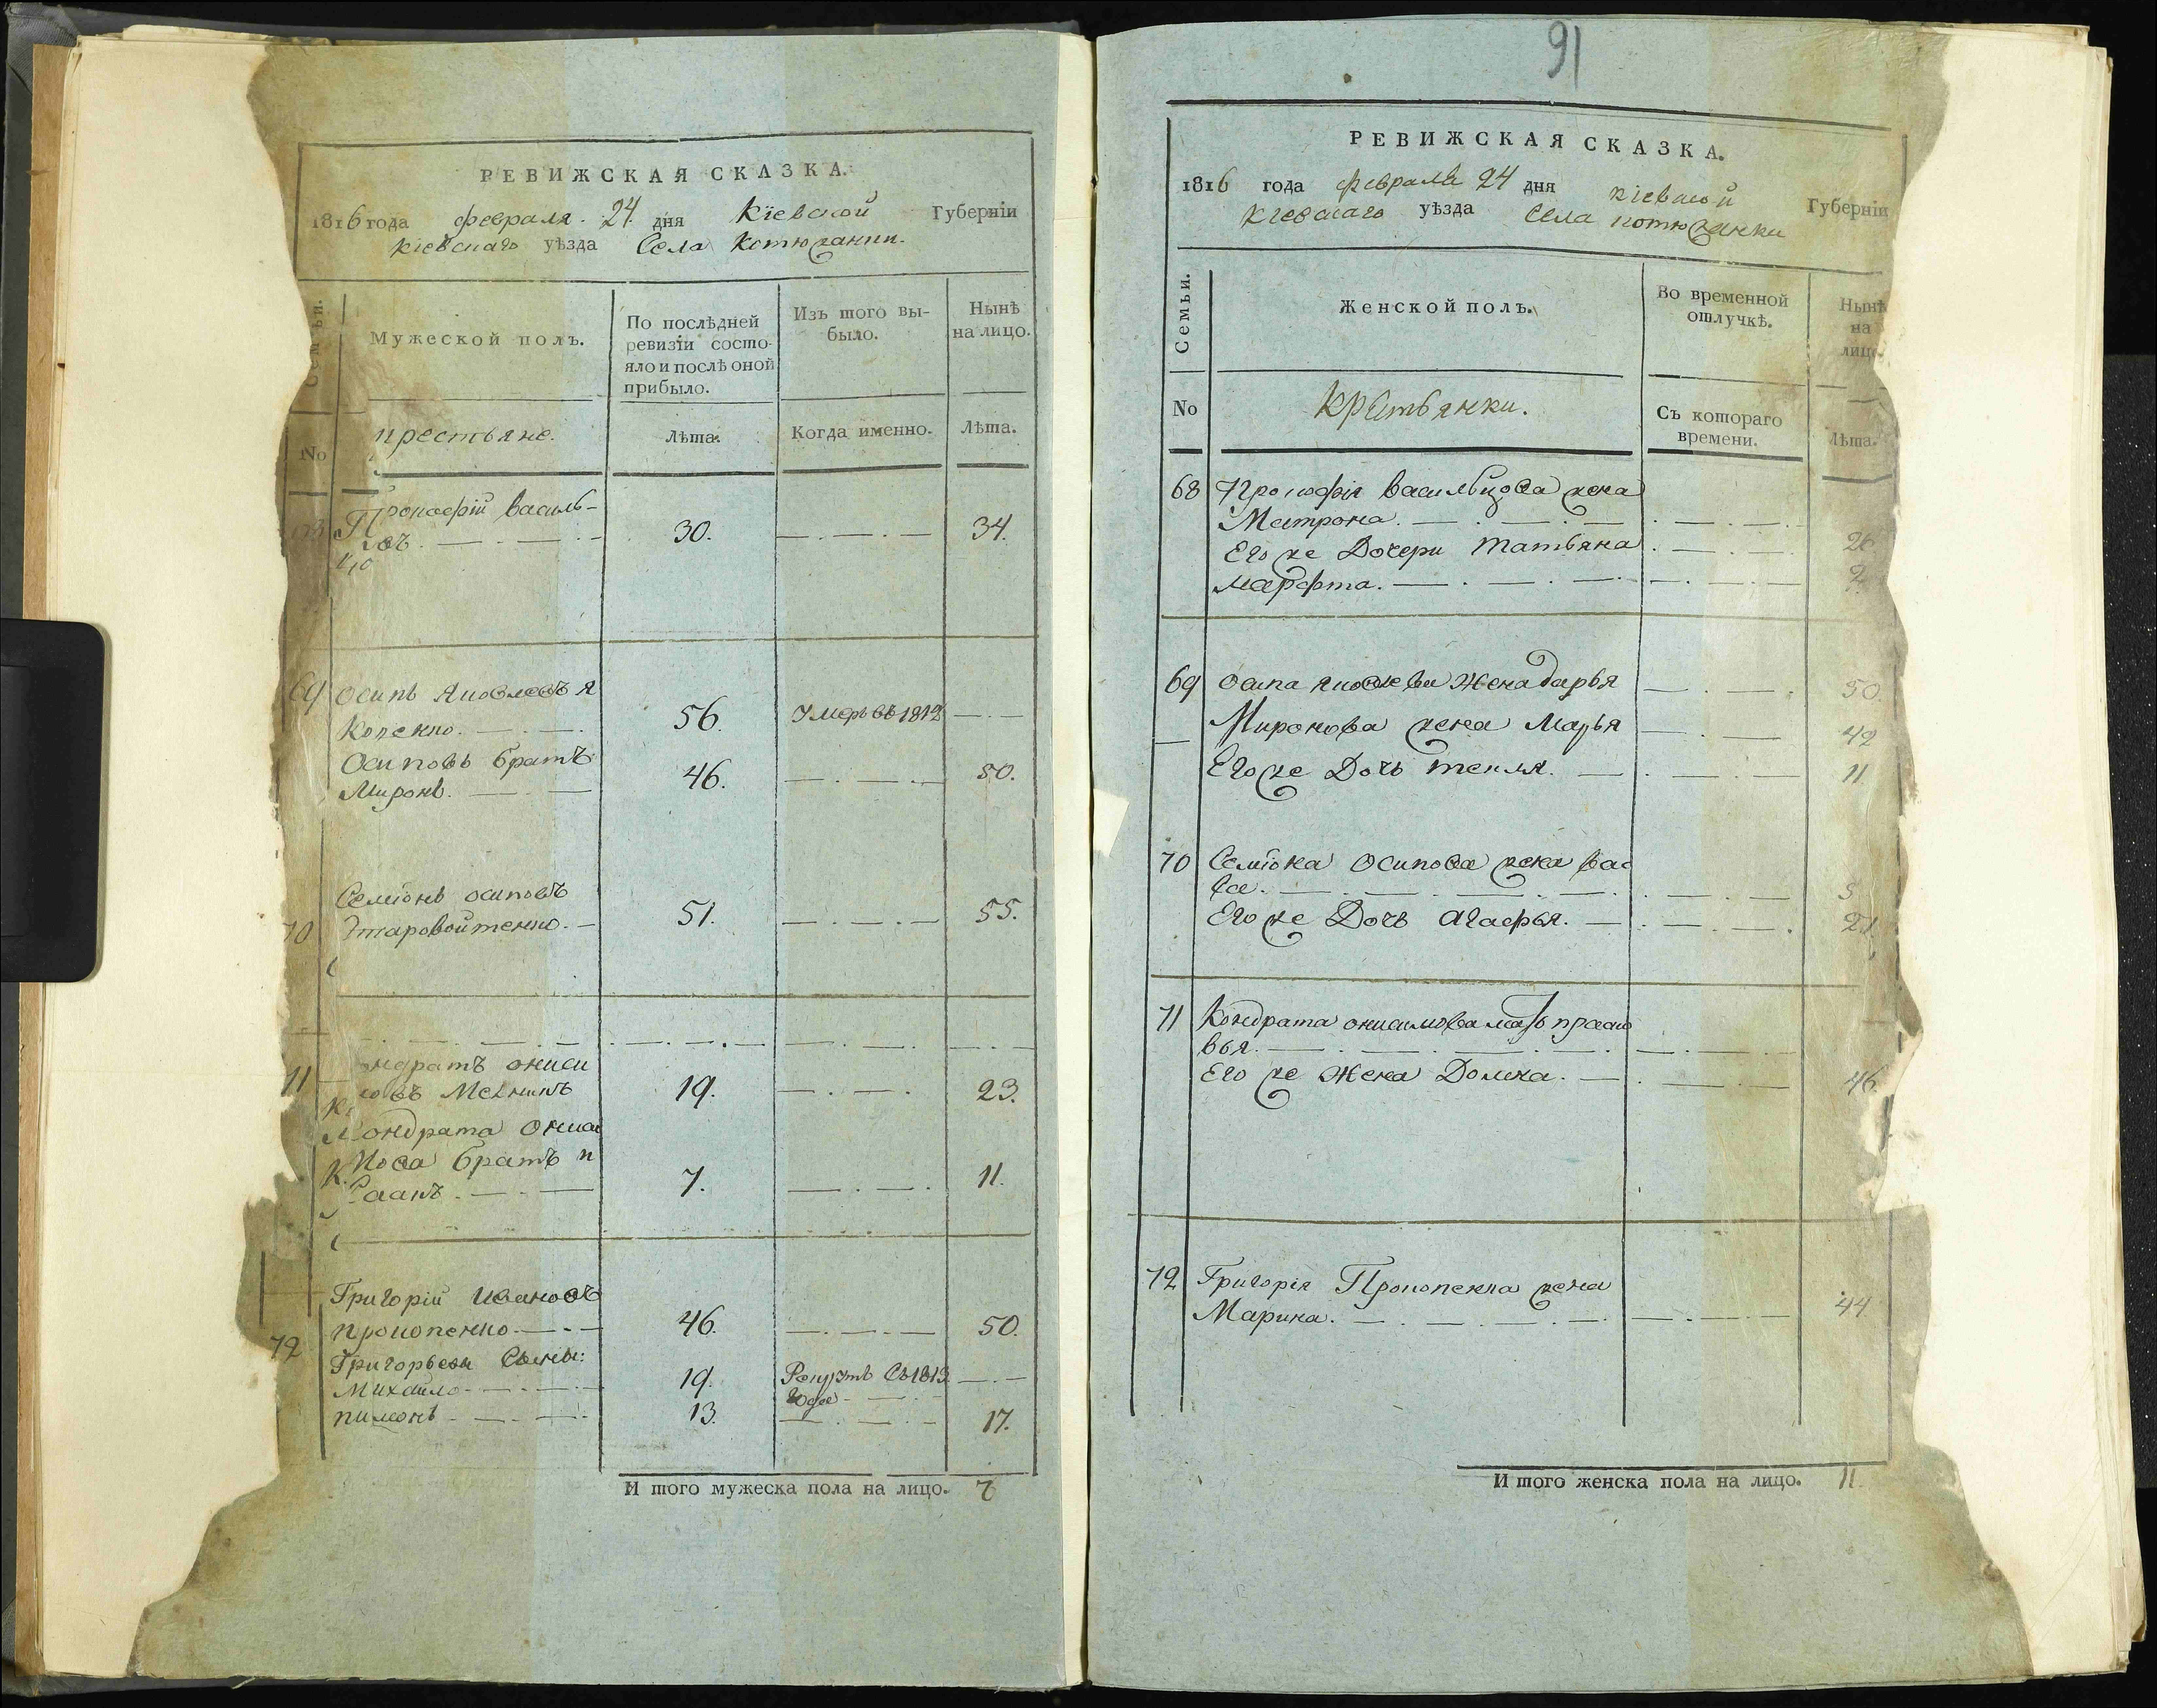 РЕВИЖСКАЯ СКАЗКА.
1816 года февраля 24 дня Кіевской Губерніи
Кіевскаго уѣзда Села Котюжанки.
Семьи.
Мужеской полъ.
По послѣдней
ревизіи состо-
яло и послѣ оной
прибыло.
Изъ того вы-
было.
Нынѣ
на лицо.
No
крестьяне.
Лѣта.
Когда именно.
Лѣта.
Прокофій Василь-
30.
34.
69 Осипъ Яковлевъ
56. Умеръ въ 1812
Осиповъ братъ
Миронъ. 46. 50.
Семіонъ Осиповъ
70 Старовойтенко. 51. 55.
Кондратъ Ониси
71 мовъ Мелникъ 19. 23.
Кондрата Ониси
мова братъ И
саакъ. 7. 11.
Григорій Ивановъ
72 Прокопенко. 46. 50.
Григорьевы Сыны:
Михайло 19. Рекрутъ съ 1813
года
Пимонъ 13. 17.
И того мужеска пола на лицо. 7
91
РЕВИЖСКАЯ СКАЗКА.
1816 года февраля 24 дня Кіевской Губерніи
Кіевскаго уѣзда Села Котюжанки
Семьи.
Женской полъ.
Во временной
отлучкѣ.
Нынѣ
на
лицо.
No
Крестьянки.
Съ котораго
времени.
Лѣта.
68 Прокофія Васильцова жена
Матрона.
Его же Дочери Татьяна 26.
Марфта. 9
69 Осипа Яковлева Жена Дарья 50.
Миронова жена Марья 42
Его же Дочь Текля. 11
70 Семіона Осипова жена Вас
са. 5
Его же Дочь Агафья. 21.
71 Кондрата Онисимова мать Праско
вья.
Его же Жена Домна. 46.
72 Григорія Прокопенка жена
Марина. 44
И того женска пола на лицо. 11.